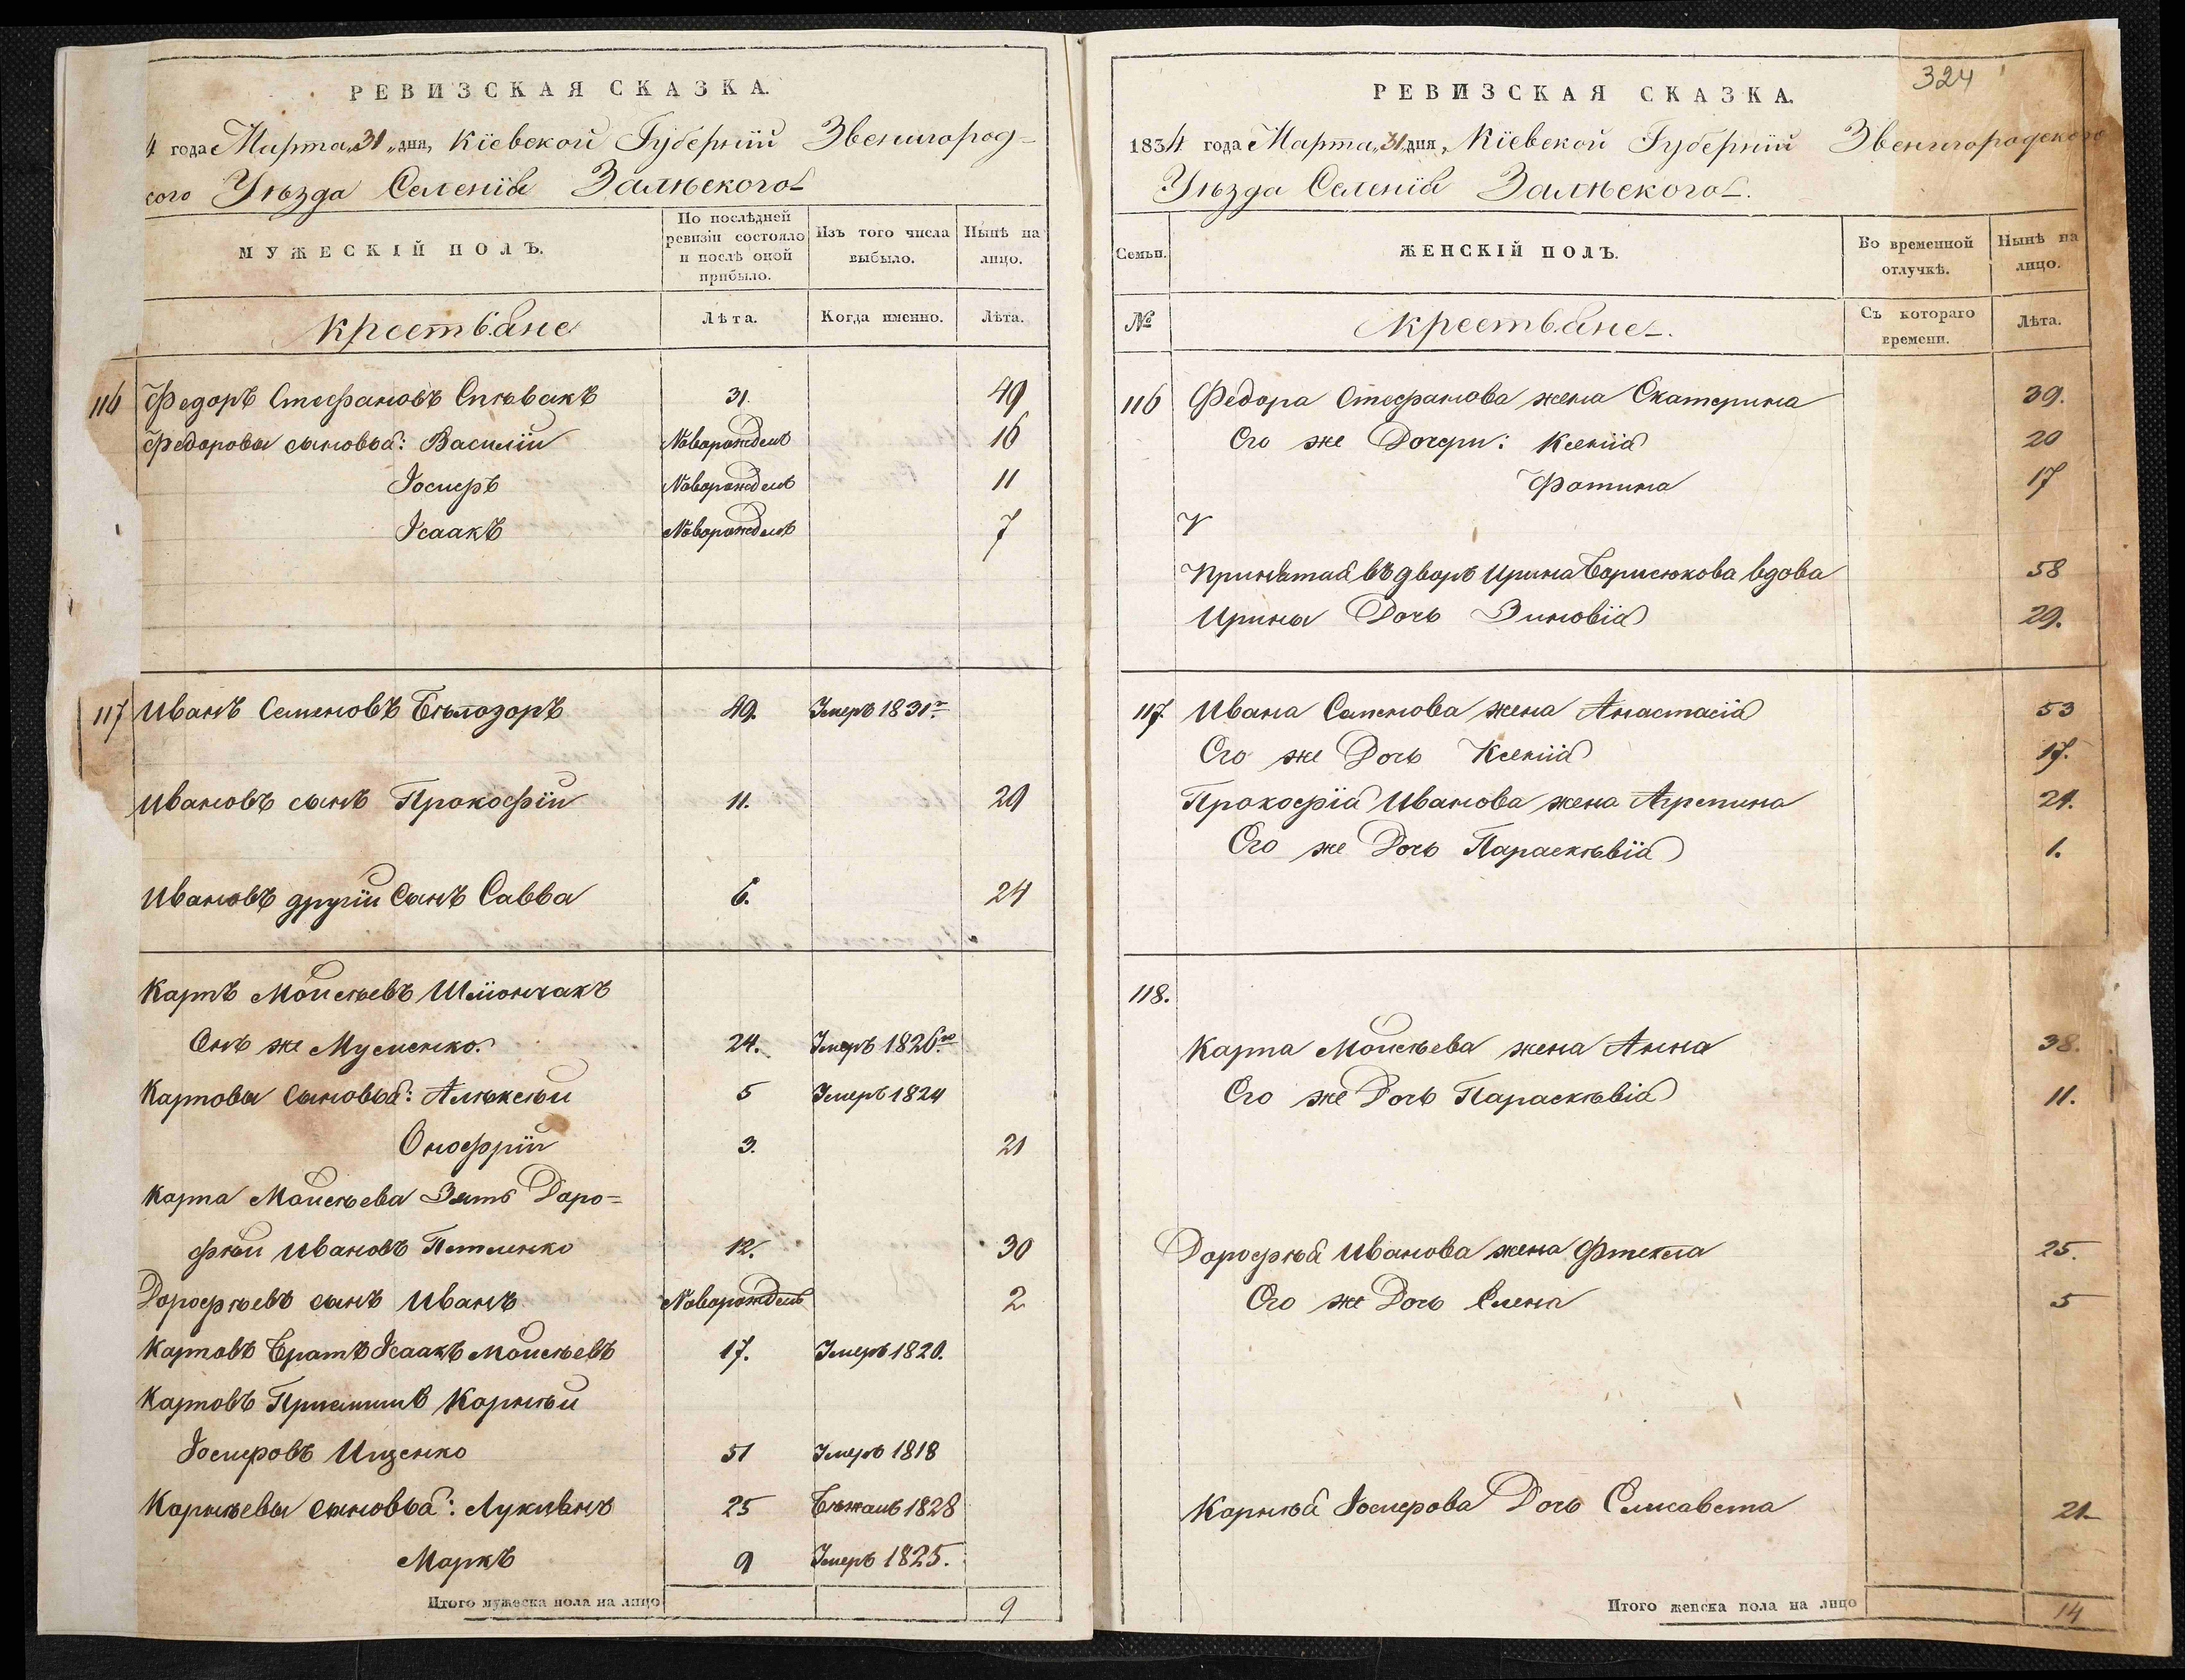 РЕВИЗСКАЯ СКАЗКА.
4 года Марта „31„ дня, Кіевской Губерніи Звенигород-
сого Уѣзда Селенія Залѣского
МУЖЕСКІЙ ПОЛЪ.
По послѣдней ревизіи состояло и послѣ оной прибыло.
Изъ того числа выбыло.
Нынѣ на лицо.
крестьяне
Лѣта.
Когда именно.
Лѣта.
116 Федоръ Стефановъ Спѣвакъ 31. 49
Федоровы сыновья: Василій Новорожденъ 16
Іосифъ Новорожденъ 11
Ісаакъ Новорожденъ 7
117 Иванъ Семеновъ Бѣлозоръ 49. Умеръ 1831г.
Ивановъ сынъ Прокофій 11. 29
Ивановъ другій Сынъ Савва 6. 24
Карпъ Мойсѣевъ
Онъ же Мусіенко. 24. Умеръ 1826го
Карповы Сыновья: Алѣксѣй 5 Умеръ 1824
Онофрій 3. 21
Карпа Мойсѣева Зять Доро=
фѣй Ивановъ 12. 30
Дорофѣевъ сынъ Иванъ Новорожденъ 2
Карповъ Братъ Ісаакъ Мойсѣевъ 17. Умеръ 1820.
Карповъ Пріемышъ Корнѣй
Іосифовъ Ищенко 51 Умеръ 1818
Корнѣевы сыновья: Лукіянъ 25 Бѣжалъ 1828
Маркъ 9 Умеръ 1825.
Итого мужеска пола на лицо 9
324
РЕВИЗСКАЯ СКАЗКА.
1834 года Марта „31„ дня, Кіевской Губерніи Звенигородского
Уѣзда Селенія Залѣского.
Семьи.
ЖЕНСКІЙ ПОЛЪ.
Во временной отлучкѣ.
Нынѣ на лицо.
№
крестьяне.
Съ котораго времени.
Лѣта.
116 Федора Стефанова жена Екатерина 39.
Его же Дочери: Ксенія 20
Фотина 17
Принятая въ дворъ Ирина Борисюкова вдова 58
Ирины Дочь Зиновія 29.
117. Ивана Семенова жена Анастасія 53
Его же Дочь Ксенія 17.
Прокофія Иванова жена Агрепина 21.
Его же Дочь Параскѣвія 1.
118.
Карпа Мойсѣева жена Анна 38.
Его же Дочь Параскѣвія 11.
Дорофѣя Иванова жена Фтекла 25.
Его же Дочь Елена 5
Корнѣя Іосифова Дочь Елисавета 21.
Итого женска пола на лицо 14